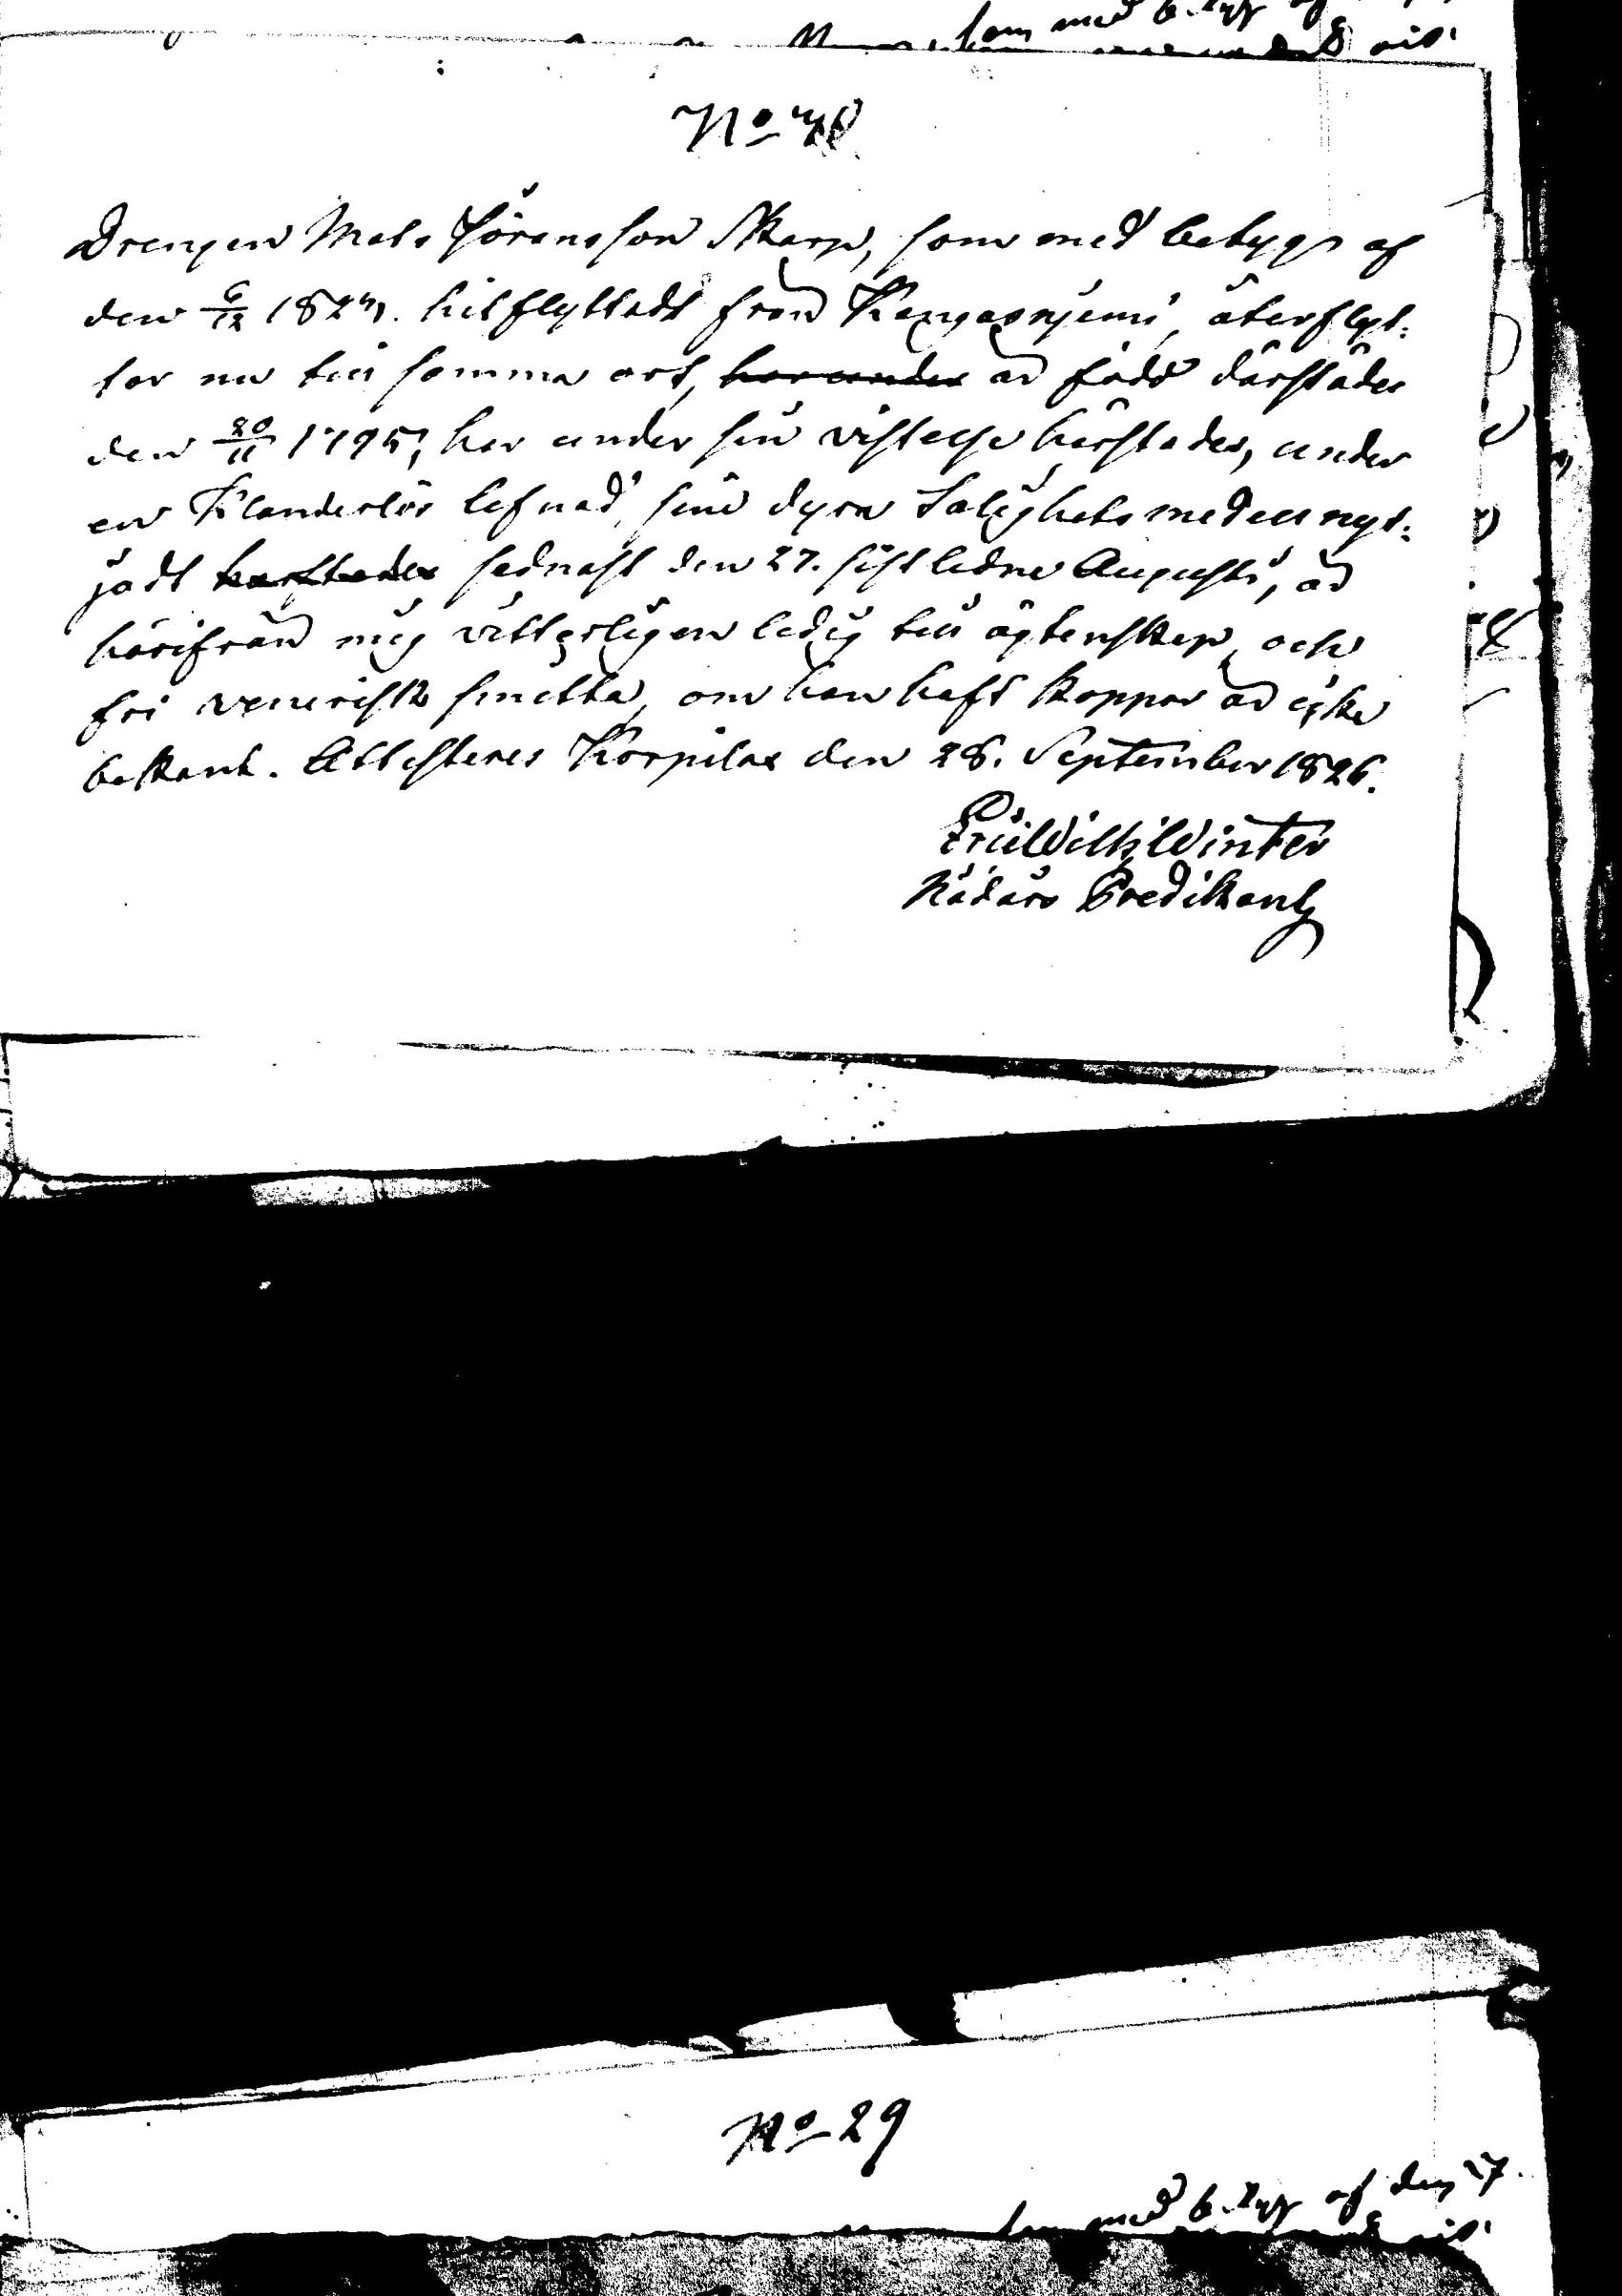 som med b. tyg
No 48
Drengen Mats Göransson Skarp, som med betyg af
den 6/12 1823. hitflyttadt från Kangasnjemi, återflyt-
tar nu till samma ort, har under är född därstädes
den 20/11 1795, har under sin vistelse härstädes, under
en Klanderlös lefnad, sine dyra Salighets medell nyt-
jadt härstädes sednast den 27. sistledne Augusti, är
härifrån mig vitterligen ledig till ägtenskap och
fri venerisk smitta, om han haft koppor är icke
bekant. Attesteres Korpilax den 28. September 1826.
Eric Wilh Winter
Nådårs Predikant
No 29
med b. tyg af den 17